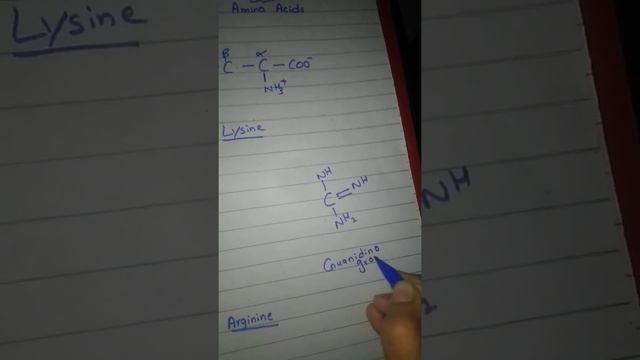 Lysine
Amino Acids
β α
C - C - COO⁻
NH₃⁺
Lysine
NH
C = NH
NH₂
Guanidino
Arginine
NH
2